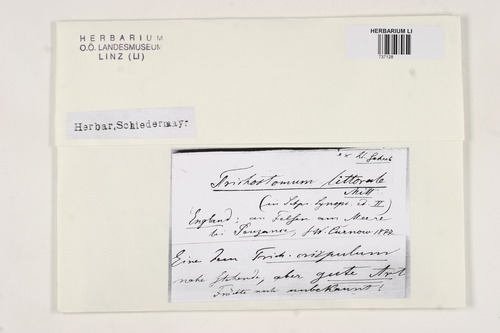 HERBARIUM
O.Ö. LANDESMUSEUM
LINZ (LI)
HERBARIUM LI
737128
Herbar, Schiedermayr
Trichostomum littorale
Mitt
(in Schpr Synops. ed. II)
England: an Felsen am Meere
bei Penzance, W. Curnow
Eine dem Trich. crispulum
nahe stehende, aber gute Art
Früchte noch unbekannt!